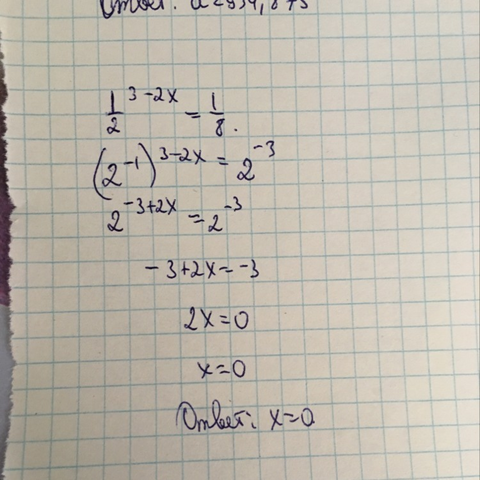 Ответ:
1/2^3-2x = 1/8.
(2^-1)^3-2x = 2^-3
2^-3+2x = 2^-3
-3+2x=-3
2x=0
x=0
Ответ: x=0